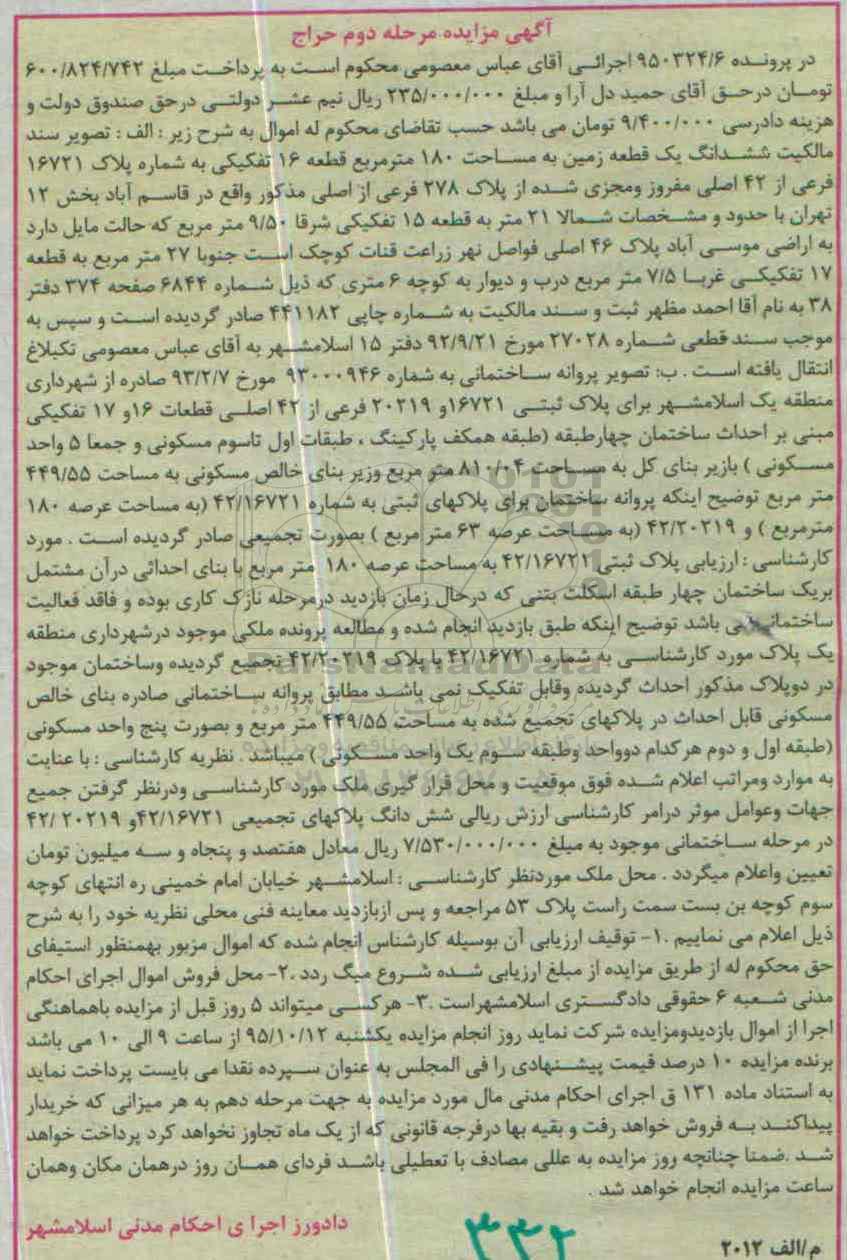 آگهی مزایده مرحله دوم حراج
در پرونده ۹۵۰۳۲۴/۶ اجرائی آقای عباس معصومی محکوم است به پرداخت مبلغ ۶۰۰/۸۲۴/۷۴۲
تومان درحق آقای حمید دل آرا و مبلغ ۲۳۵/۰۰۰/۰۰۰ ریال نیم عشر دولتی درحق صندوق دولت و
هزینه دادرسی ۹/۴۰۰/۰۰۰ تومان می باشد حسب تقاضای محکوم له اموال به شرح زیر : الف : تصویر سند
مالکیت ششدانگ یک قطعه زمین به مساحت ۱۸۰ مترمربع قطعه ۱۶ تفکیکی به شماره پلاک ۱۶۷۲۱
فرعی از ۴۲ اصلی مفروز ومجزی شده از پلاک ۲۷۸ فرعی از اصلی مذکور واقع در قاسم آباد بخش ۱۲
تهران با حدود و مشخصات شمالا ۲۱ متر به قطعه ۱۵ تفکیکی شرقا ۹/۵۰ متر مربع که حالت مایل دارد
به اراضی موسی آباد پلاک ۴۶ اصلی فواصل نهر زراعت قنات کوچک است جنوبا ۲۷ متر مربع به قطعه
۱۷ تفکیکی غربا ۷/۵ متر مربع درب و دیوار به کوچه ۶ متری که ذیل شماره ۶۸۴۴ صفحه ۳۷۴ دفتر
۳۸ به نام آقا احمد مظهر ثبت و سند مالکیت به شماره چاپی ۴۴۱۱۸۲ صادر گردیده است و سپس به
موجب سند قطعی شماره ۲۷۰۲۸ مورخ ۹۲/۹/۲۱ دفتر ۱۵ اسلامشهر به آقای عباس معصومی تکبلاغ
انتقال یافته است . ب: تصویر پروانه ساختمانی به شماره ۹۳۰۰۰۹۴۶ مورخ ۹۳/۲/۷ صادره از شهرداری
منطقه یک اسلامشهر برای پلاک ثبتی ۱۶۷۲۱و ۲۰۲۱۹ فرعی از ۴۲ اصلی قطعات ۱۶و ۱۷ تفکیکی
مبنی بر احداث ساختمان چهارطبقه (طبقه همکف پارکینگ ، طبقات اول تاسوم مسکونی و جمعا ۵ واحد
مسکونی ) بازیر بنای کل به مساحت ۸۱۰/۰۴ متر مربع وزیر بنای خالص مسکونی به مساحت ۴۴۹/۵۵
متر مربع توضیح اینکه پروانه ساختمان برای پلاکهای ثبتی به شماره ۴۲/۱۶۷۲۱ (به مساحت عرصه ۱۸۰
مترمربع ) و ۴۲/۲۰۲۱۹ (به مساحت عرصه ۶۳ متر مربع ) بصورت تجمیعی صادر گردیده است . مورد
کارشناسی : ارزیابی پلاک ثبتی ۴۲/۱۶۷۲۱ به مساحت عرصه ۱۸۰ متر مربع با بنای احداثی درآن مشتمل
بریک ساختمان چهار طبقه اسکلت بتنی که درحال زمان بازدید درمرحله نازک کاری بوده و فاقد فعالیت
ساختمانی می باشد توضیح اینکه طبق بازدید انجام شده و مطالعه پرونده ملکی موجود درشهرداری منطقه
یک پلاک مورد کارشناسی به شماره ۴۲/۱۶۷۲۱ با پلاک ۴۲/۲۰۲۱۹ تجمیع گردیده وساختمان موجود
در دوپلاک مذکور احداث گردیده وقابل تفکیک نمی باشد مطابق پروانه ساختمانی صادره بنای خالص
مسکونی قابل احداث در پلاکهای تجمیع شده به مساحت ۴۴۹/۵۵ متر مربع و بصورت پنج واحد مسکونی
(طبقه اول و دوم هرکدام دوواحد وطبقه سوم یک واحد مسکونی ) میباشد . نظریه کارشناسی : با عنایت
به موارد ومراتب اعلام شده فوق موقعیت و محل قرار گیری ملک مورد کارشناسی ودرنظر گرفتن جمیع
جهات وعوامل موثر درامر کارشناسی ارزش ریالی شش دانگ پلاکهای تجمیعی ۴۲/۱۶۷۲۱و ۲۰۲۱۹ /۴۲
در مرحله ساختمانی موجود به مبلغ ۷/۵۳۰/۰۰۰/۰۰۰ ریال معادل هفتصد و پنجاه و سه میلیون تومان
تعیین واعلام میگردد . محل ملک موردنظر کارشناسی : اسلامشهر خیابان امام خمینی ره انتهای کوچه
سوم کوچه بن بست سمت راست پلاک ۵۳ مراجعه و پس ازبازدید معاینه فنی محلی نظریه خود را به شرح
ذیل اعلام می نماییم .۱- توقیف ارزیابی آن بوسیله کارشناس انجام شده که اموال مزبور بهمنظور استیفای
حق محکوم له از طریق مزایده از مبلغ ارزیابی شده شروع میگ ردد .۲- محل فروش اموال اجرای احکام
مدنی شعبه ۶ حقوقی دادگستری اسلامشهراست .۳- هرکسی میتواند ۵ روز قبل از مزایده باهماهنگی
اجرا از اموال بازدیدومزایده شرکت نماید روز انجام مزایده یکشنبه ۹۵/۱۰/۱۲ از ساعت ۹ الی ۱۰ می باشد
برنده مزایده ۱۰ درصد قیمت پیشنهادی را فی المجلس به عنوان سپرده نقدا می بایست پرداخت نماید
به استناد ماده ۱۳۱ ق اجرای احکام مدنی مال مورد مزایده به جهت مرحله دهم به هر میزانی که خریدار
پیداکند به فروش خواهد رفت و بقیه بها درفرجه قانونی که از یک ماه تجاوز نخواهد کرد پرداخت خواهد
شد .ضمنا چنانچه روز مزایده به عللی مصادف با تعطیلی باشد فردای همان روز درهمان مکان وهمان
ساعت مزایده انجام خواهد شد .
دادورز اجرا ی احکام مدنی اسلامشهر
م/الف ۲۰۱۲
۳۳۲
ParsNamadData